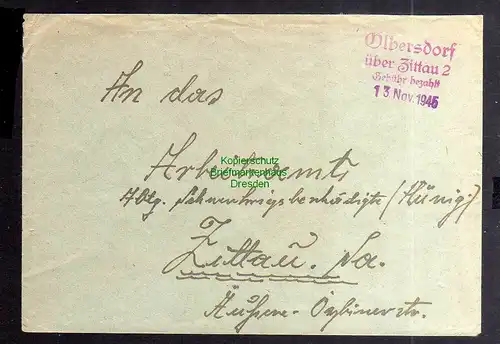 Olbersdorf
über Zittau 2
Gebühr bezahlt
13. Nov. 1945
An das
Kopierschutz
Briefmarkenhaus
Dresden
Arbeitsamt
Abtg.
Zittau. Sa.
Äußere-Oybinerstr.